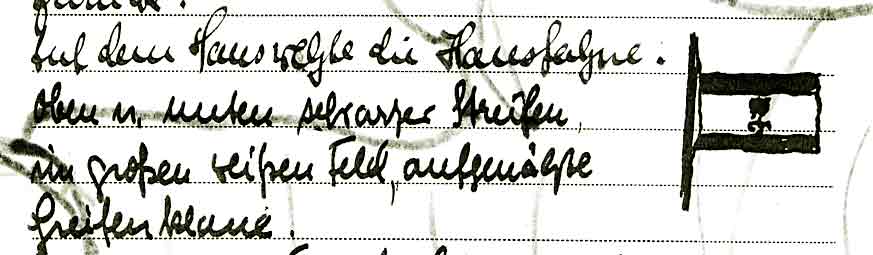 zurück.
Auf dem Haus wehte die Hausfahne.
oben u. unten schwarzer Streifen,
im großen weißen Feld, aufgenähte
Greifenklaue.